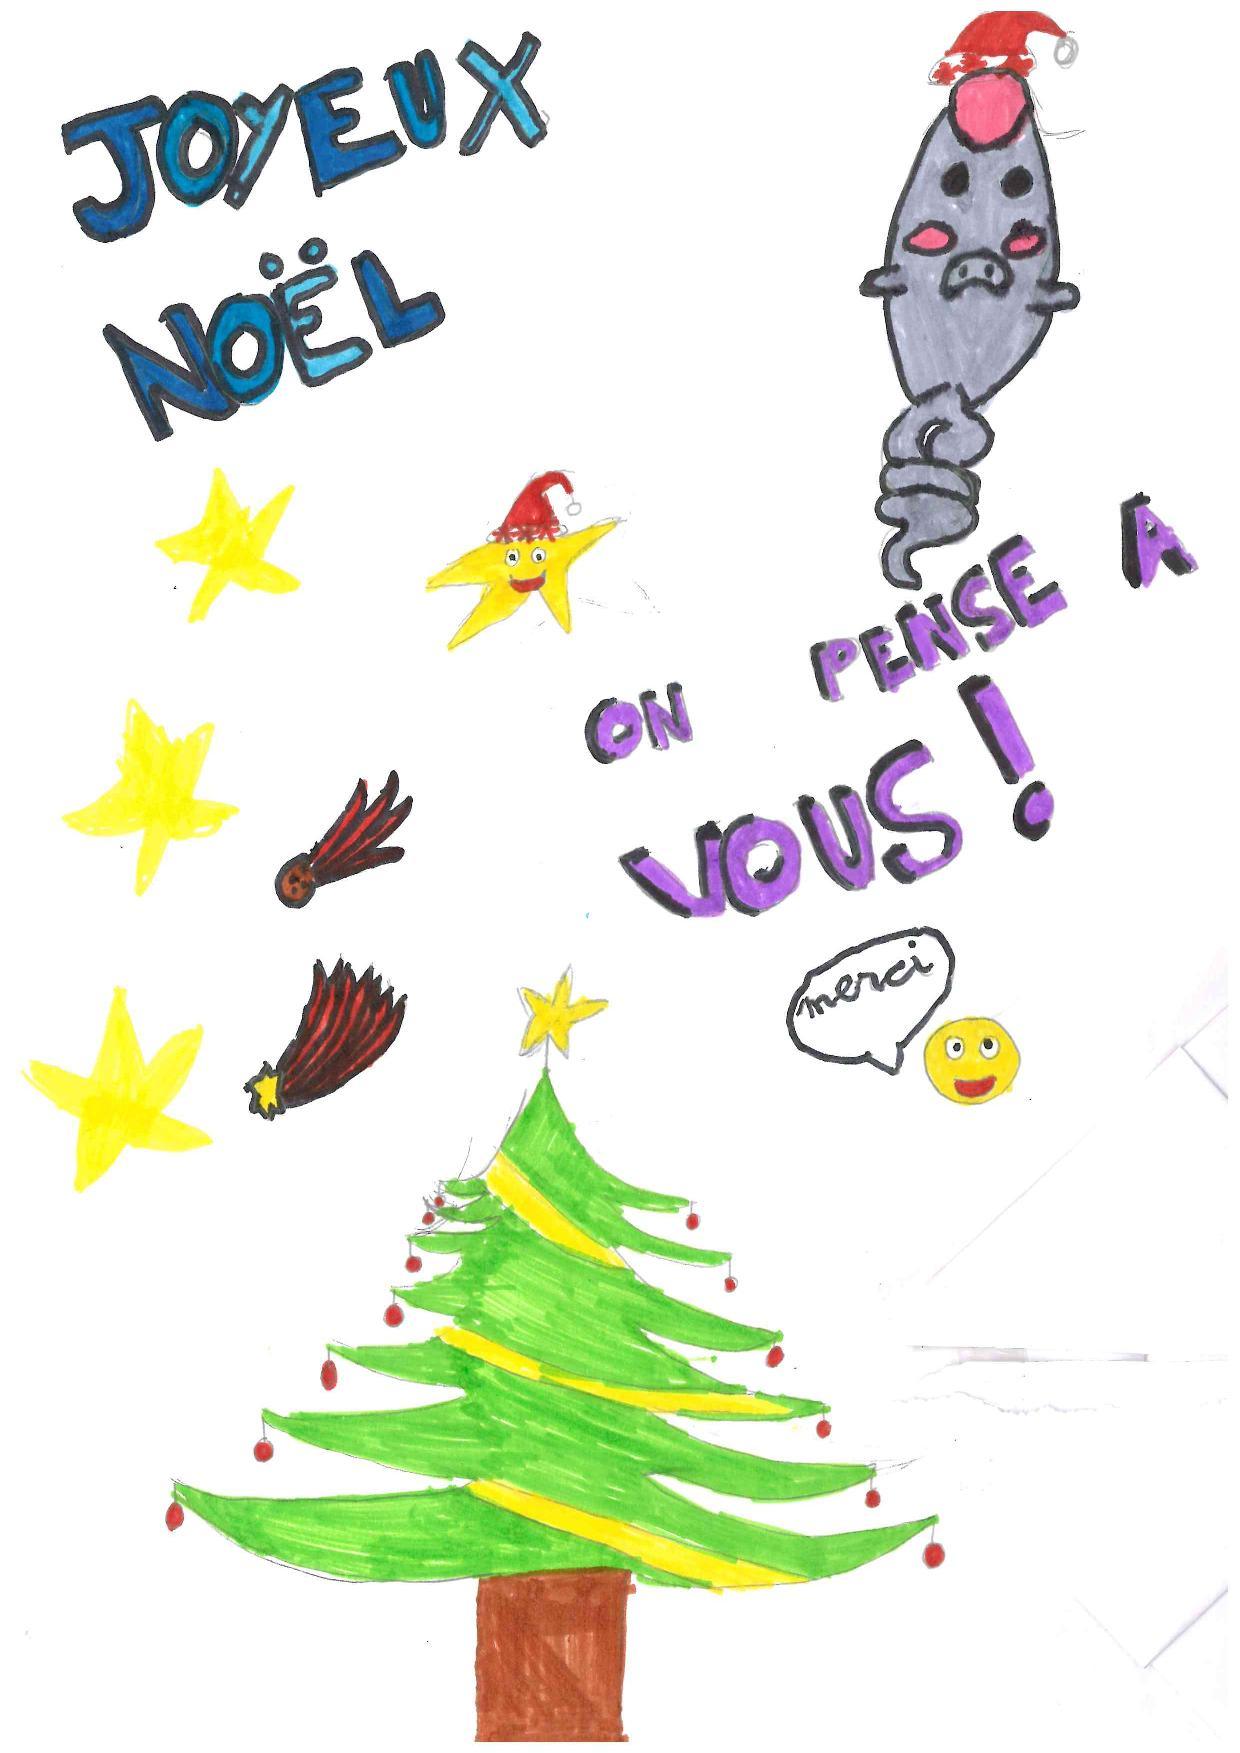 JOYEUX
NOËL
ON PENSE A
VOUS!
merci